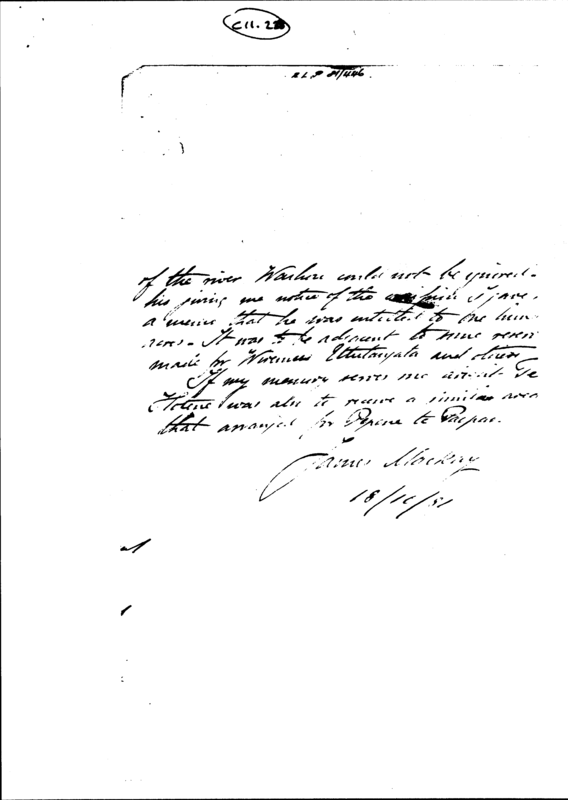 C11.2
RLP 81/446
of the river could not be ignored
his giving me notice of the I gave
a memo that he was entitled to one hun
acres. It was to be adjacent to some reser
made for Wiremu and others
If my memory serves me Te
Hotene was also to receive a similar area
that arranged for Pepene te
James Mackay
18/ /81